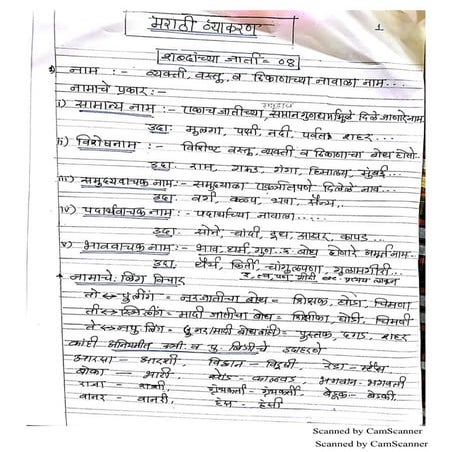 मराठी व्याकरण
1
शब्दांच्या जाती = 08
१) नाम :- व्यक्ती, वस्तू, व ठिकाणाच्या नावाला नाम...
नामाचे प्रकार :-
i) सामान्य नाम :- एकाच जातीच्या, समान गुणधर्मामुळे दिले जाणारे नाम
उदा: मुलगा, पक्षी, नदी, पर्वत, शहर...
ii) विशेषनाम :- विशिष्ट वस्तू, व्यक्ती व ठिकाणाचा बोध होतो.
उदा: राम, गरुड, गंगा, हिमालय, मुंबई...
iii) समुदायवाचक नाम :- समुदायाला एकत्रितपणे दिलेले नाव..
उदा: वर्ग, कळप, थवा, सैन्य..
iv) पदार्थवाचक नाम :- पदार्थाच्या नावाला....
उदा: सोने, चांदी, दूध, साखर, कापड...
v) भाववाचक नाम :- भाव, धर्म, गुण बोध होणारे अमूर्त नाम..
उदा: धैर्य, किर्ती, चांगुलपणा, गुलामगीरी...
नामाचे लिंग विचार
तो पुलींग = नरजातीचा बोध = शिक्षक, घोडा, चिमणा
ती स्त्रिलिंग = मादी जातीचा बोध = शिक्षीका, घोडी, चिमणी
ते नपु लिंग = पुस्तक, दगड, शहर
काही अनियमीत स्त्री. व पु. लिंगीचे उदाहरणे
आरसा - आरशी, विद्वान - विदुषी, रेडा - म्हैस
बोका - भाटी, काळवीट, भगवान - भगवती
राजा - राणी, ग्रंथकर्ता - ग्रंथकर्ती, बेडूक - बेडकी
वानर - वानरी, हंस - हंसी
Scanned by CamScanner
Scanned by CamScanner